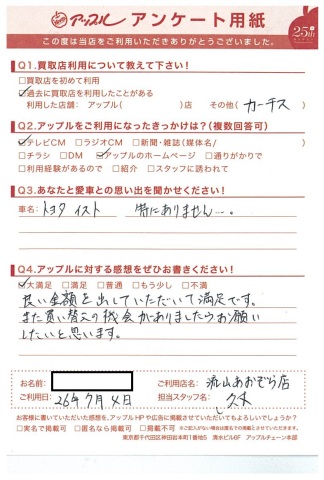 アップル アンケート用紙
25th
この度は当店をご利用いただきありがとうございました。
Q1.買取店利用について教えて下さい!
□買取店を初めて利用
☑過去に買取店を利用したことがある
利用した店舗: アップル( )店 その他( カーチス )
Q2.アップルをご利用になったきっかけは?(複数回答可)
☑テレビCM □ラジオCM □新聞・雑誌(媒体名/ )
□チラシ □DM ☑アップルのホームページ □通りがかりで
□利用経験があるので □紹介 □スタッフに誘われて
Q3.あなたと愛車との思い出を聞かせください!
車名: トヨタ イスト 特にありません…。
Q4.アップルに対する感想をぜひお書きください!
☑大満足 □満足 □普通 □もう少し □不満
良い金額を出していただいて満足です。
また買い替えの機会がありましたらお願い
したいと思います。
お名前: ご利用店名: 流山おおぞら店
ご利用日: 26年7月4日 担当スタッフ名:
お客様に書いていただいた感想を、アップルHPや広告に掲載させていただいてもよろしいでしょうか?
□実名で掲載可 □匿名なら掲載可 □掲載不可 ※ご記入がない場合は匿名での掲載とさせていただきます。
東京都千代田区神田岩本町1番地5 清水ビル6F アップルチェーン本部